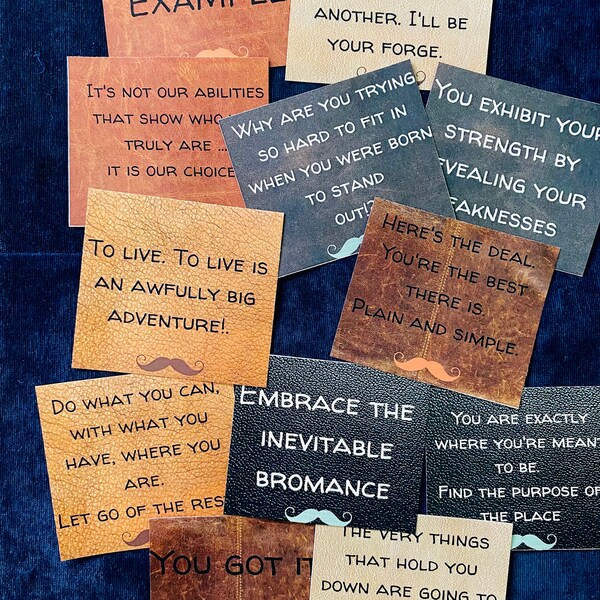 EXAMPLE
ANOTHER. I'LL BE
YOUR FORGE.
IT'S NOT OUR ABILITIES
THAT SHOW WHO
TRULY ARE ...
IT IS OUR CHOICE
WHY ARE YOU TRYING
SO HARD TO FIT IN
WHEN YOU WERE BORN
TO STAND
OUT!?
YOU EXHIBIT YOUR
STRENGTH BY
EVEALING YOUR
EAKNESSES
TO LIVE. TO LIVE IS
AN AWFULLY BIG
ADVENTURE!.
HERE'S THE DEAL.
YOU'RE THE BEST
THERE IS.
PLAIN AND SIMPLE.
DO WHAT YOU CAN,
WITH WHAT YOU
HAVE, WHERE YOU
ARE.
LET GO OF THE RES
EMBRACE THE
INEVITABLE
BROMANCE
YOU ARE EXACTLY
WHERE YOU'RE MEANT
TO BE.
FIND THE PURPOSE OF
THE PLACE
YOU GOT IT
THE VERY THINGS
THAT HOLD YOU
DOWN ARE GOING TO